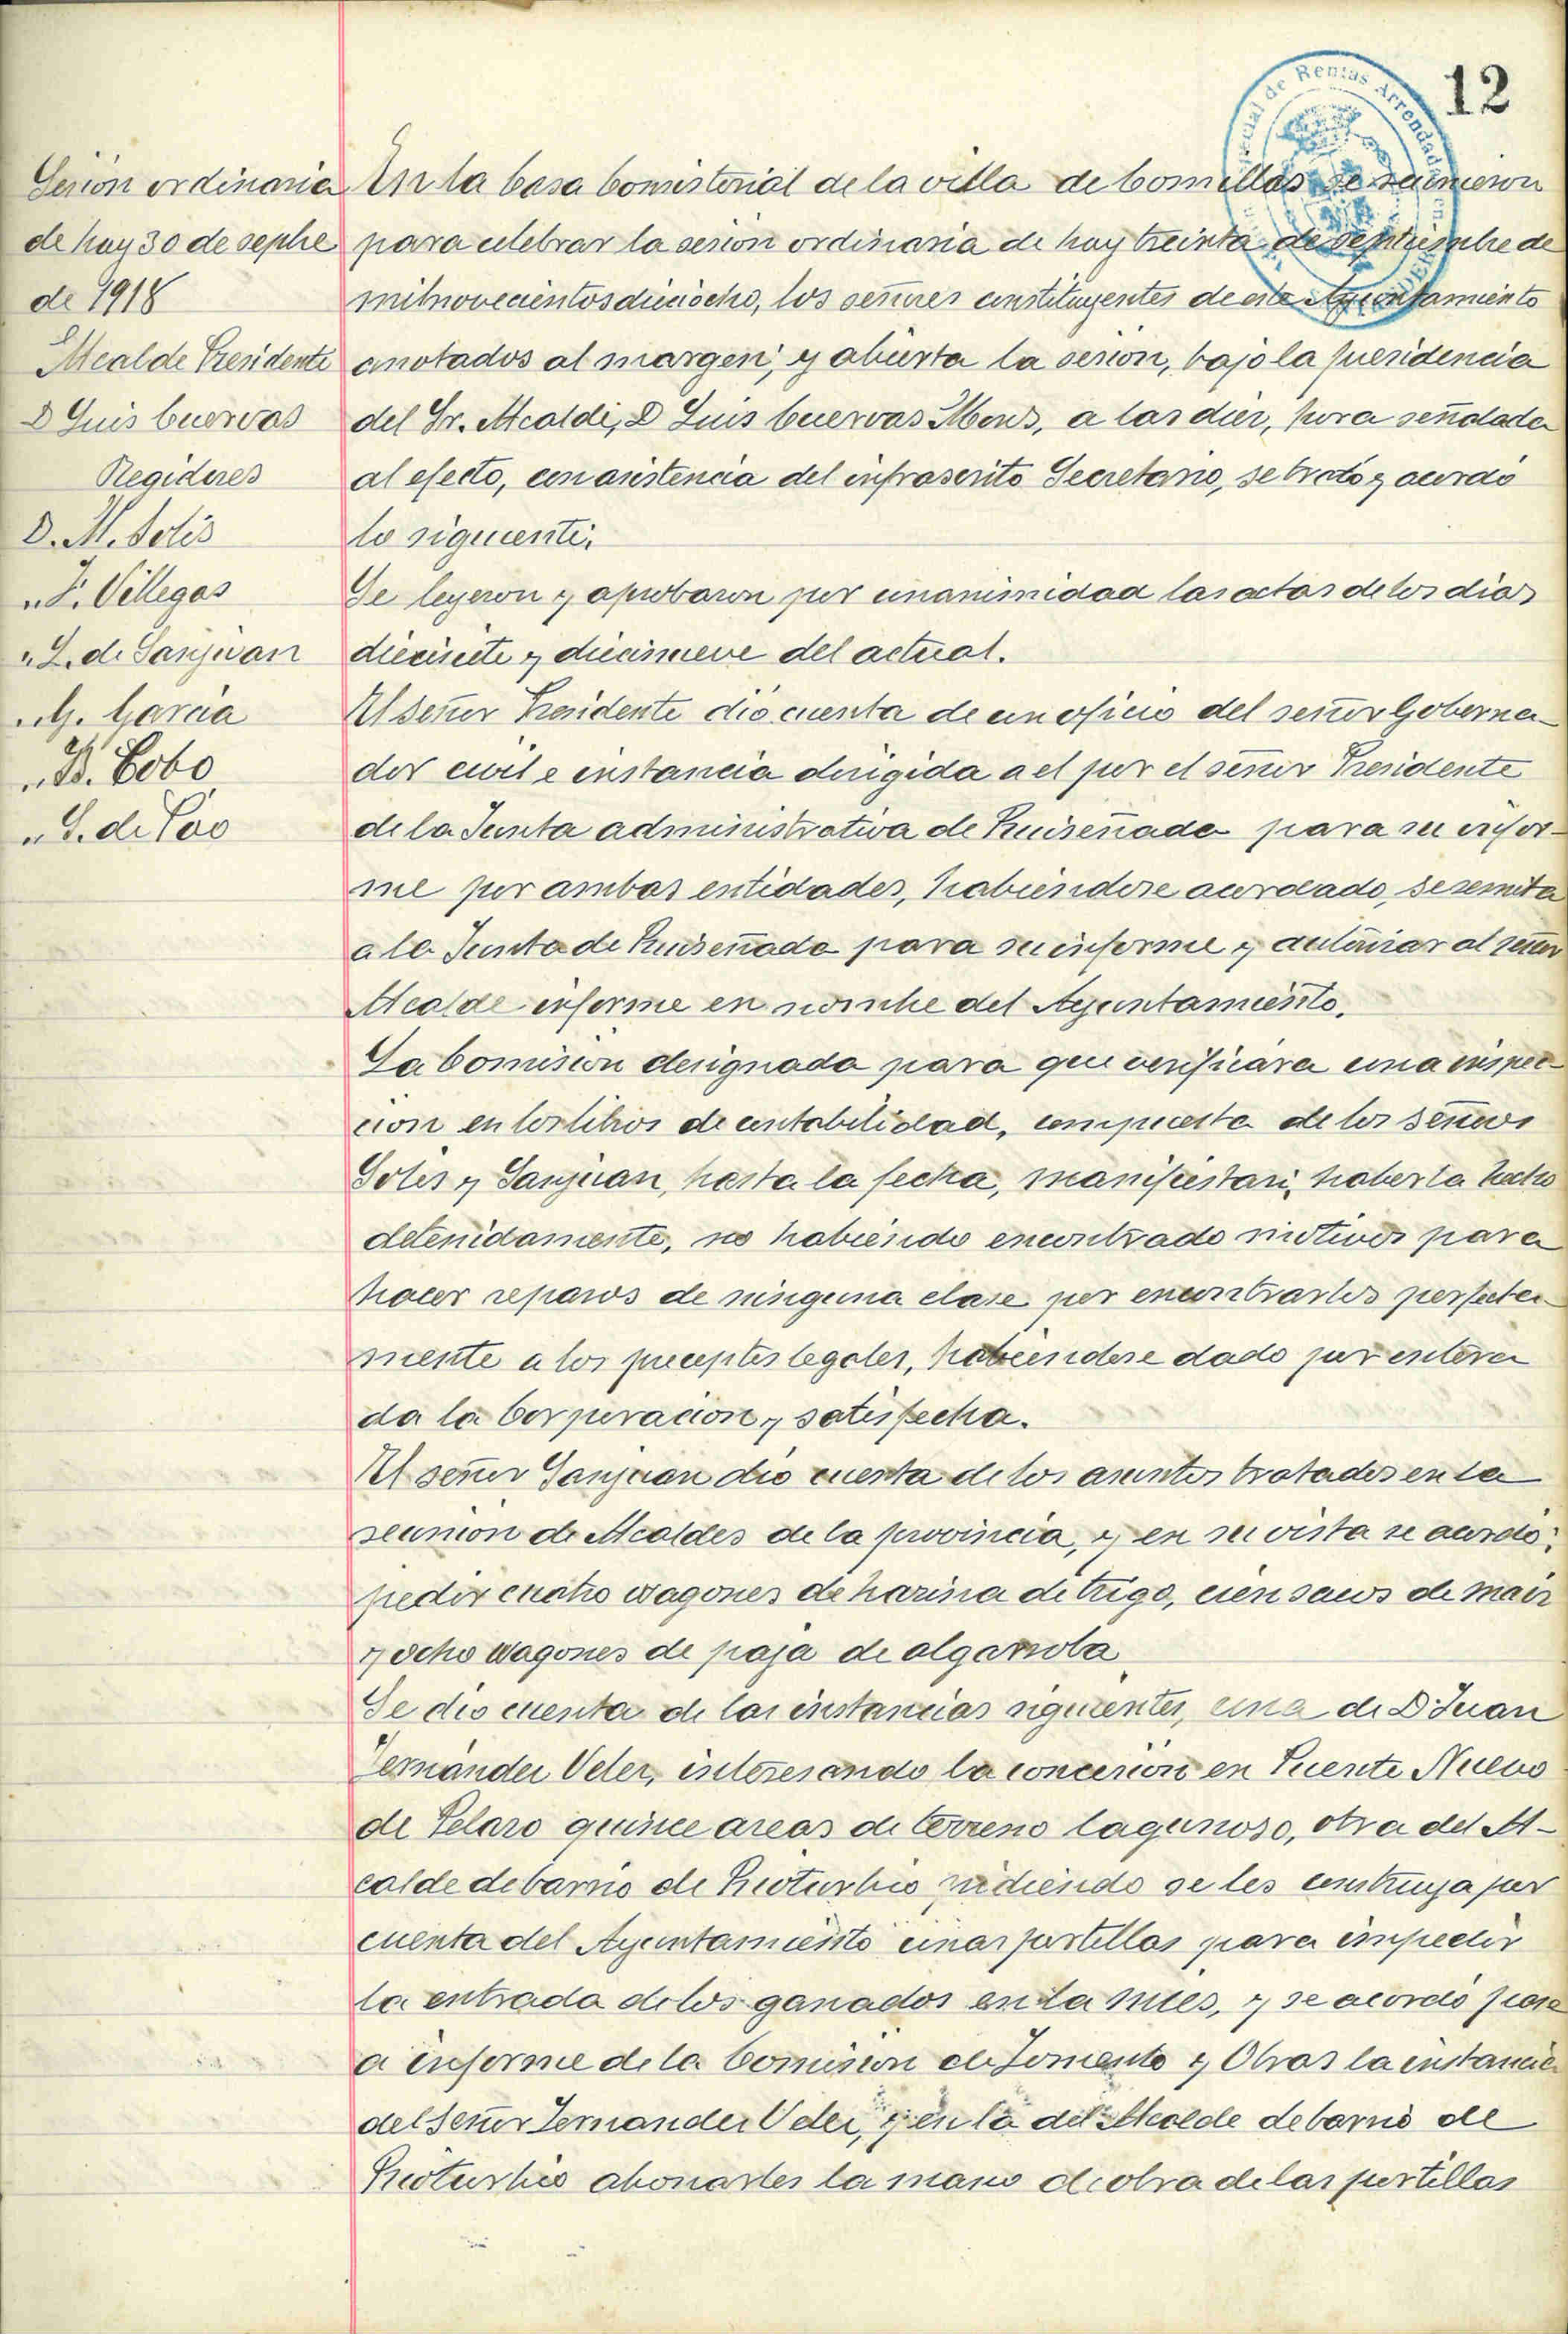 12
Especial de Rentas Arrendadas en
Sesión ordinaria
de hoy 30 de sepbre
de 1918
Alcalde Presidente
D Luis Cuervas
Regidores
D. M. Solís
" F. Villegas
" L. de Sanjuan
" G. Garcia
" B. Cobo
" G. de Poo
En la Casa Consistorial de la villa de Comillas se reunieron
para celebrar la sesion ordinaria de hoy treinta de septiembre de
mil novecientos dieciocho, los señores constituyentes de este Ayuntamiento
anotados al margen, y abierta la sesion, bajo la presidencia
del Sr. Alcalde, D Luis Cuervas Mons, a las diez, hora señalada
al efecto, con asistencia del infrascrito Secretario, se trató y acordó
lo siguiente:
Se leyeron y aprobaron por unanimidad las actas de los dias
diecisiete y diecinueve del actual.
El señor Presidente dió cuenta de un oficio del señor Goberna-
dor civil e instancia dirigida a el por el señor Presidente
de la Junta administrativa de Ruiseñada para su infor-
me por ambas entidades, habiendose acordado, se remita
a la Junta de Ruiseñada para su informe y autorizar al señor
Alcalde informe en nombre del Ayuntamiento.
La Comision designada para que verificara una inspec-
cion en los libros de contabilidad, compuesta de los señores
Solis y Sanjuan, hasta la fecha, manifiestan, haberla hecho
detenidamente, no habiendo encontrado motivos para
hacer reparos de ninguna clase por encontrarlos perfecta-
mente a los preceptos legales, habiendose dado por entera
da la Corporacion y satisfecha.
El señor Sanjuan dio cuenta de los asuntos tratados en la
reunion de Alcaldes de la provincia, y en su vista se acordó:
pedir cuatro wagones de harina de trigo, cien sacos de maiz
y ocho wagones de paja de algarroba
Se dio cuenta de las instancias siguientes, una de D Juan
Fernández Velez, interesando la concesion en Puente Nuevo
de Pelazo quince areas de terreno lagunoso, otra del Al-
calde de barrio de Rioturbio pidiendo se les construya por
cuenta del Ayuntamiento unas portillas para impedir
la entrada de los ganados en la mies, y se acordó pase
a informe de la Comision de Fomento y Obras la instancia
del señor Fernandez Velez, y en la del Alcalde de barrio de
Rioturbio abonarles la mano de obra de las portillas